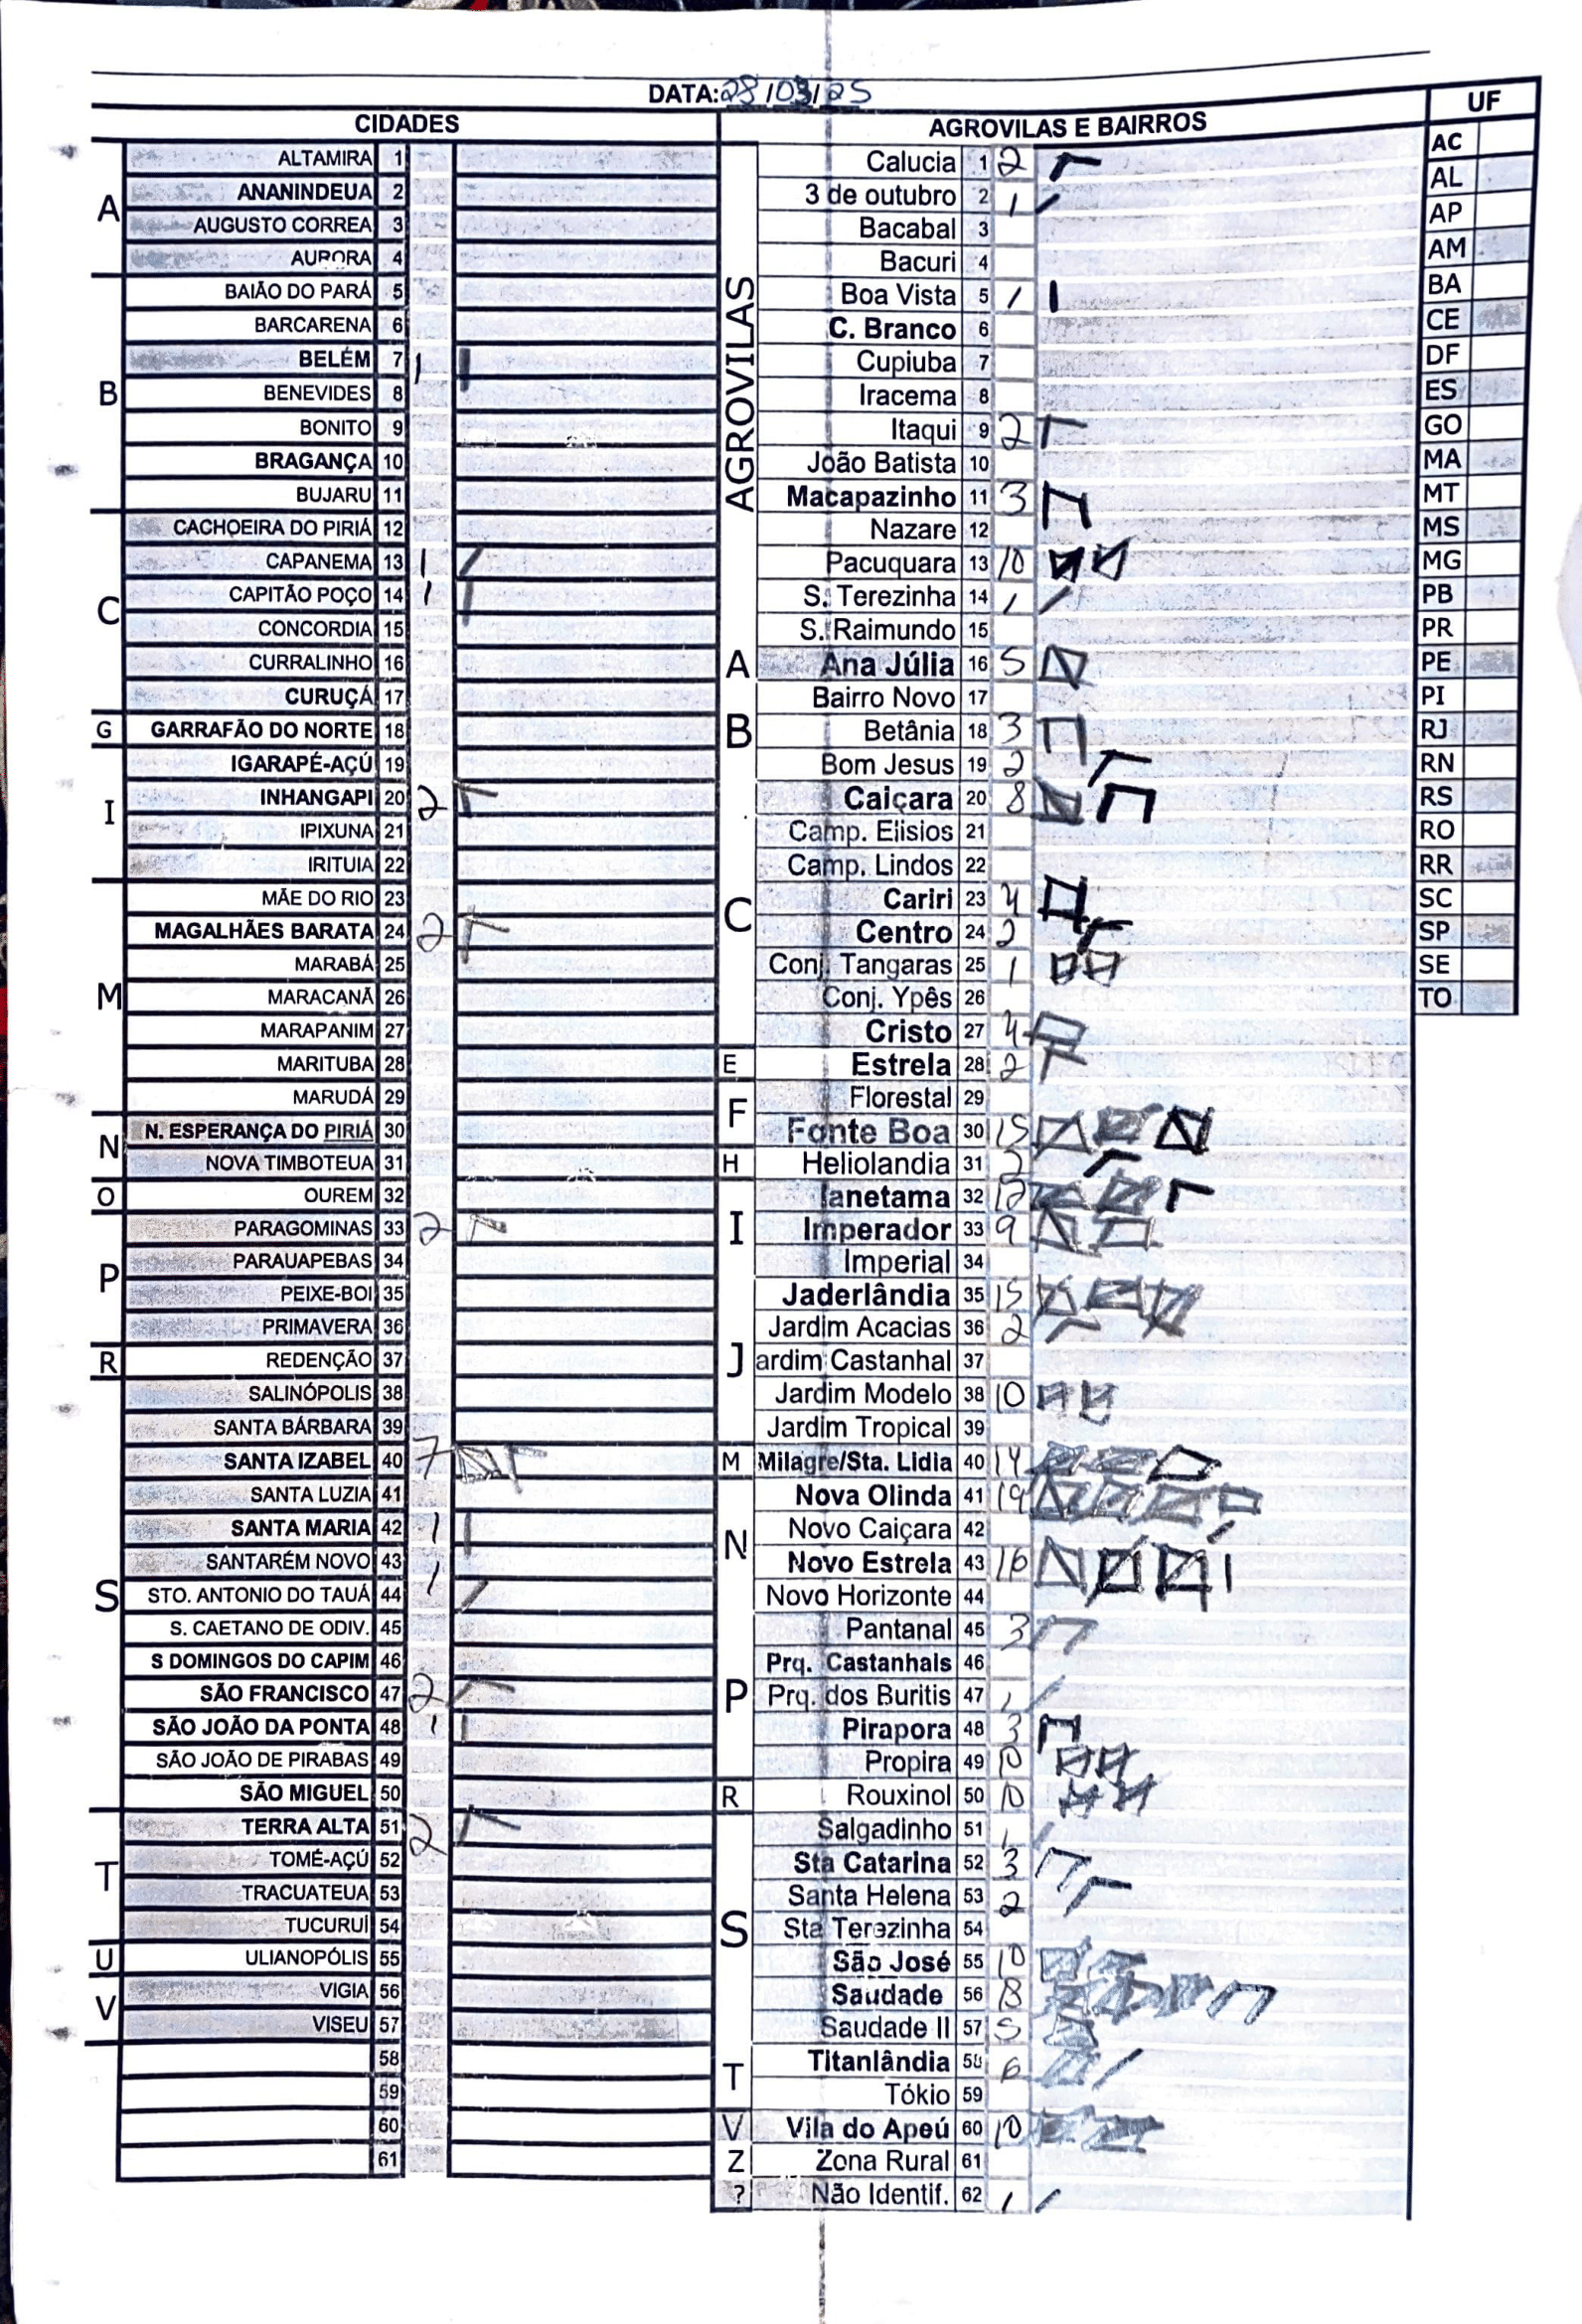 DATA: 28/03/25
CIDADES
A
ALTAMIRA 1
ANANINDEUA 2
AUGUSTO CORREA 3
AURORA 4
B
BAIÃO DO PARÁ 5
BARCARENA 6
BELÉM 7 1
BENEVIDES 8
BONITO 9
BRAGANÇA 10
BUJARU 11
C
CACHOEIRA DO PIRIÁ 12
CAPANEMA 13 1
CAPITÃO POÇO 14 1
CONCORDIA 15
CURRALINHO 16
CURUÇÁ 17
G
GARRAFÃO DO NORTE 18
I
IGARAPÉ-AÇÚ 19
INHANGAPI 20 2
IPIXUNA 21
IRITUIA 22
M
MÃE DO RIO 23
MAGALHÃES BARATA 24 2
MARABÁ 25
MARACANÃ 26
MARAPANIM 27
MARITUBA 28
MARUDÁ 29
N
N. ESPERANÇA DO PIRIÁ 30
NOVA TIMBOTEUA 31
O
OUREM 32
P
PARAGOMINAS 33 2
PARAUAPEBAS 34
PEIXE-BOI 35
PRIMAVERA 36
R
REDENÇÃO 37
S
SALINÓPOLIS 38
SANTA BÁRBARA 39
SANTA IZABEL 40 7
SANTA LUZIA 41
SANTA MARIA 42 1
SANTARÉM NOVO 43
STO. ANTONIO DO TAUÁ 44 1
S. CAETANO DE ODIV. 45
S DOMINGOS DO CAPIM 46
SÃO FRANCISCO 47 2
SÃO JOÃO DA PONTA 48 1
SÃO JOÃO DE PIRABAS 49
SÃO MIGUEL 50
T
TERRA ALTA 51 2
TOMÉ-AÇÚ 52
TRACUATEUA 53
TUCURUÍ 54
U
ULIANOPÓLIS 55
V
VIGIA 56
VISEU 57
58
59
60
61
AGROVILAS E BAIRROS
AGROVILAS
Calucia 1 2
3 de outubro 2 1
Bacabal 3
Bacuri 4
Boa Vista 5 1
C. Branco 6
Cupiuba 7
Iracema 8
Itaqui 9 2
João Batista 10
Macapazinho 11 3
Nazare 12
Pacuquara 13 10
S. Terezinha 14 1
S. Raimundo 15
A
Ana Júlia 16 5
B
Bairro Novo 17
Betânia 18 3
Bom Jesus 19 2
C
Caiçara 20 8
Camp. Eiisios 21
Camp. Lindos 22
Cariri 23 4
Centro 24 2
Conj. Tangaras 25 1
Conj. Ypês 26
Cristo 27 4
E
Estrela 28 2
F
Florestal 29
Fonte Boa 30 15
H
Heliolandia 31 2
I
Ianetama 32 12
Imperador 33 9
Imperial 34
J
Jaderlândia 35 15
Jardim Acacias 36 2
ardim Castanhal 37
Jardim Modelo 38 10
Jardim Tropical 39
M
Milagre/Sta. Lidia 40 14
N
Nova Olinda 41 19
Novo Caiçara 42
Novo Estrela 43 16
Novo Horizonte 44
P
Pantanal 45 3
Prq. Castanhais 46
Prq. dos Buritis 47 1
Pirapora 48 3
Propira 49 10
R
Rouxinol 50 10
S
Salgadinho 51 1
Sta Catarina 52 3
Santa Helena 53 2
Sta Terezinha 54
São José 55 10
Saudade 56 18
Saudade II 57 5
T
Titanlândia 58 6
Tókio 59
V
Vila do Apeú 60 10
Z
Zona Rural 61
?
Não Identif. 62 1
UF
AC
AL
AP
AM
BA
CE
DF
ES
GO
MA
MT
MS
MG
PB
PR
PE
PI
RJ
RN
RS
RO
RR
SC
SP
SE
TO